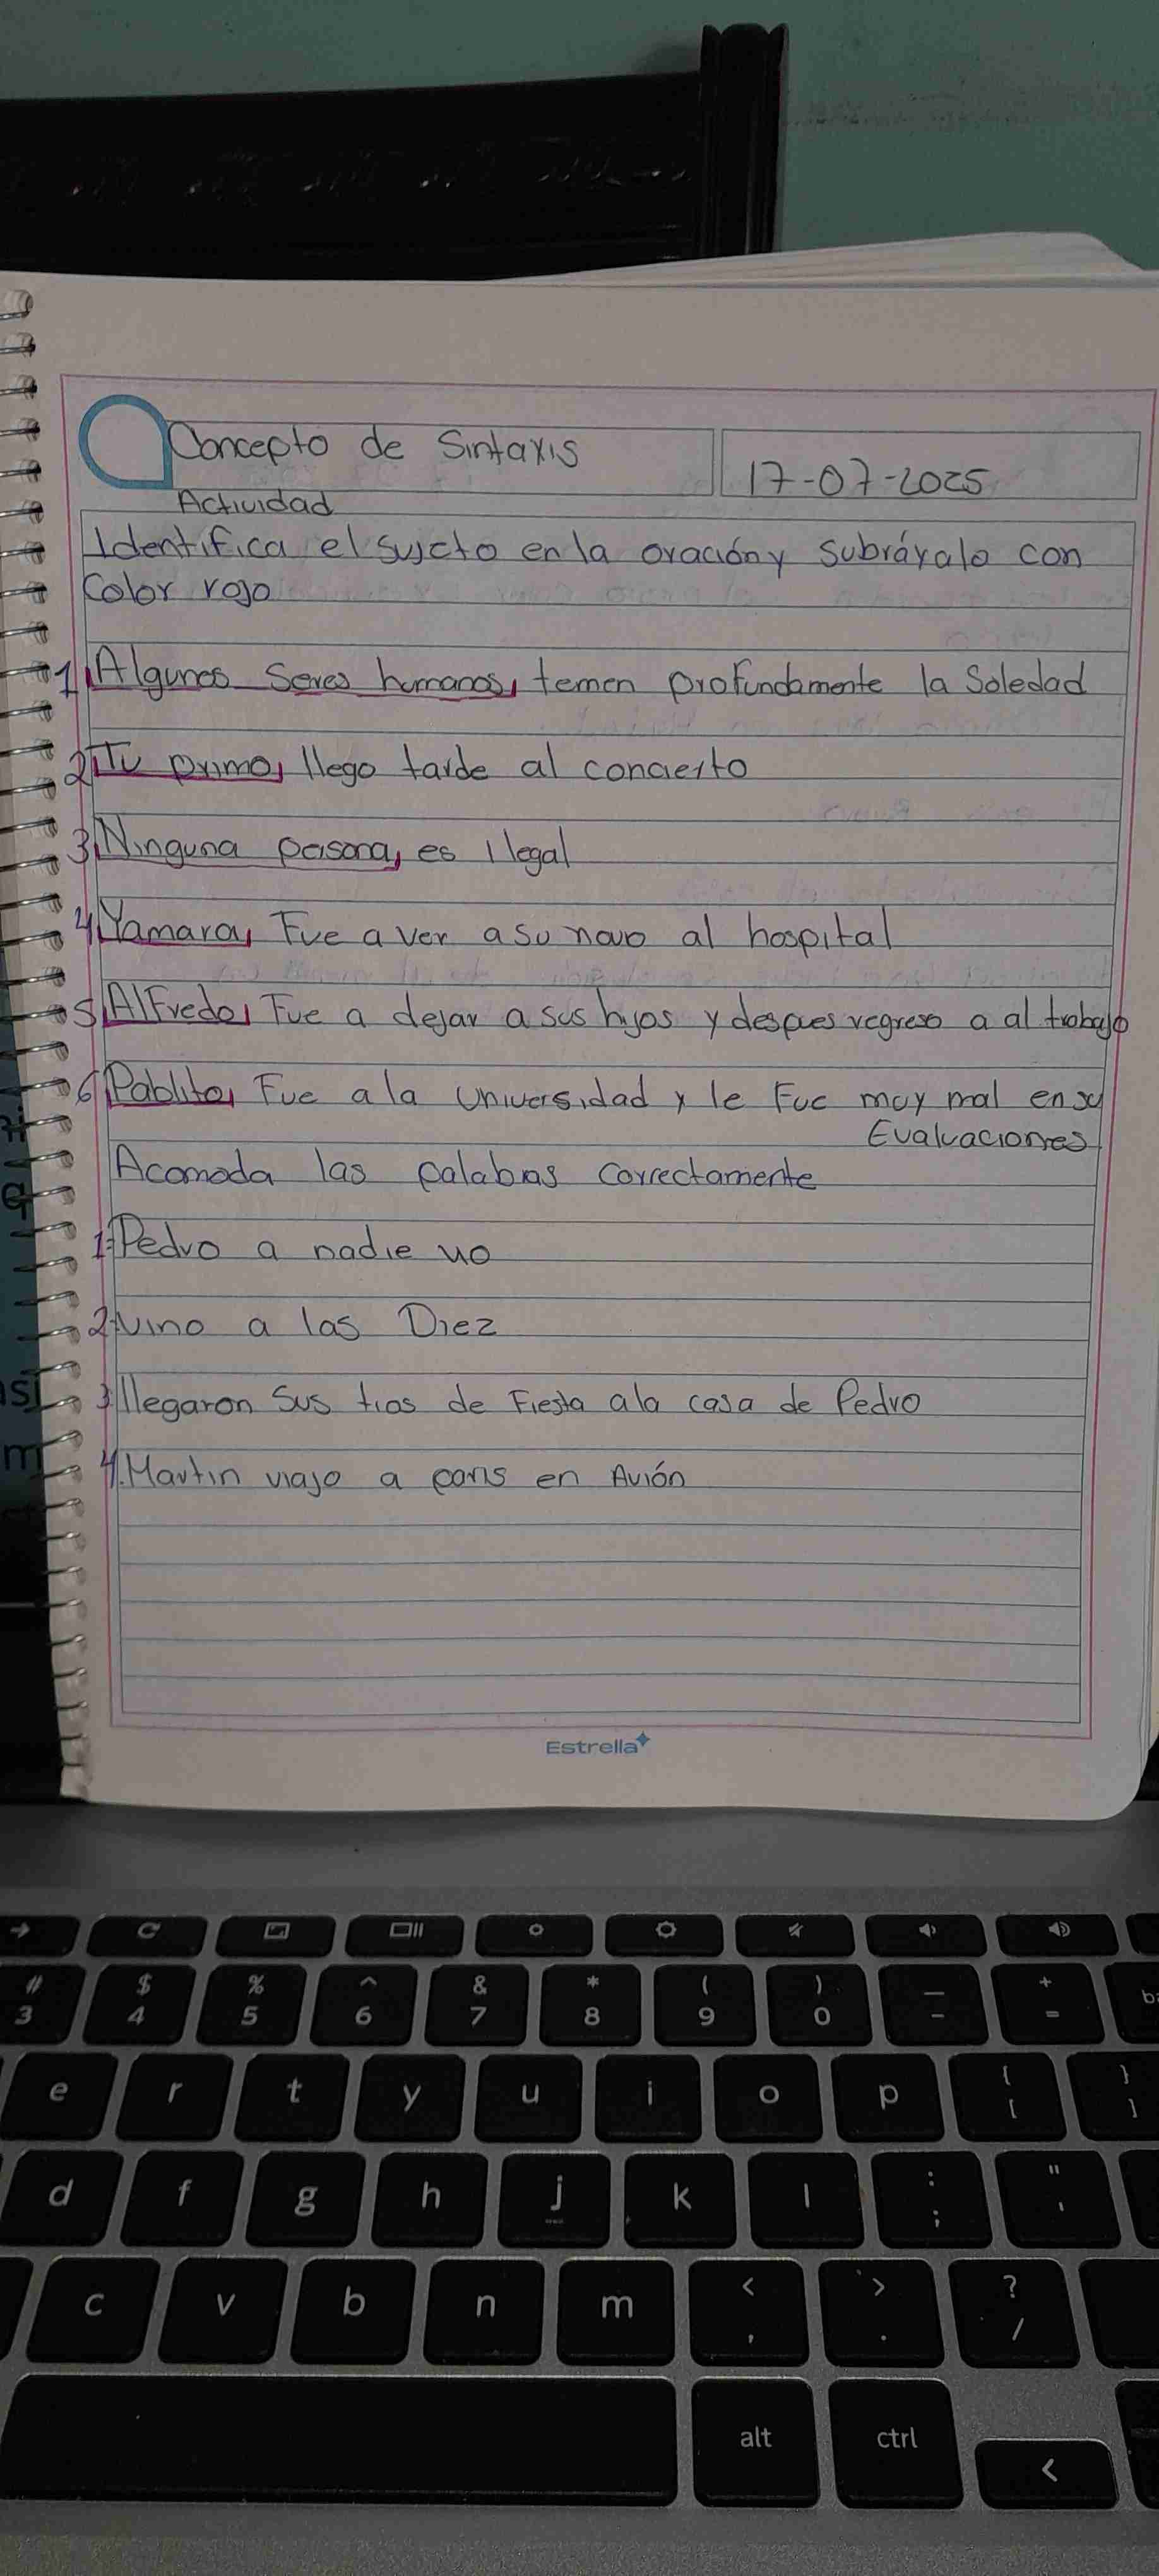 Concepto de Sintaxis
17-07-2025
Actividad
Identifica el sujeto en la oración y subráyalo con
Color rojo
1 Algunos Seres humanos, temen profundamente la Soledad
2 Tu primo, llego tarde al concierto
3 Ninguna persona, es ilegal
4 Yamara, Fue a ver a su novio al hospital
5 Alfredo, Fue a dejar a sus hijos y despues regreso a al trabajo
6 Pablito, Fue a la Universidad y le Fue muy mal en su
Evaluaciones
Acomoda las palabras Correctamente
1. Pedro a nadie vio
2. vino a las Diez
3. llegaron Sus tios de Fiesta a la casa de Pedro
4. Martin viajo a paris en Avión
Estrella
→
# 3 $ 4 % 5 ^ 6 & 7 * 8 ( 9 ) 0 — - + =
e r t y u i o p { [ } ]
d f g h j k l : ; " '
c v b n m < , > . ? /
alt ctrl <